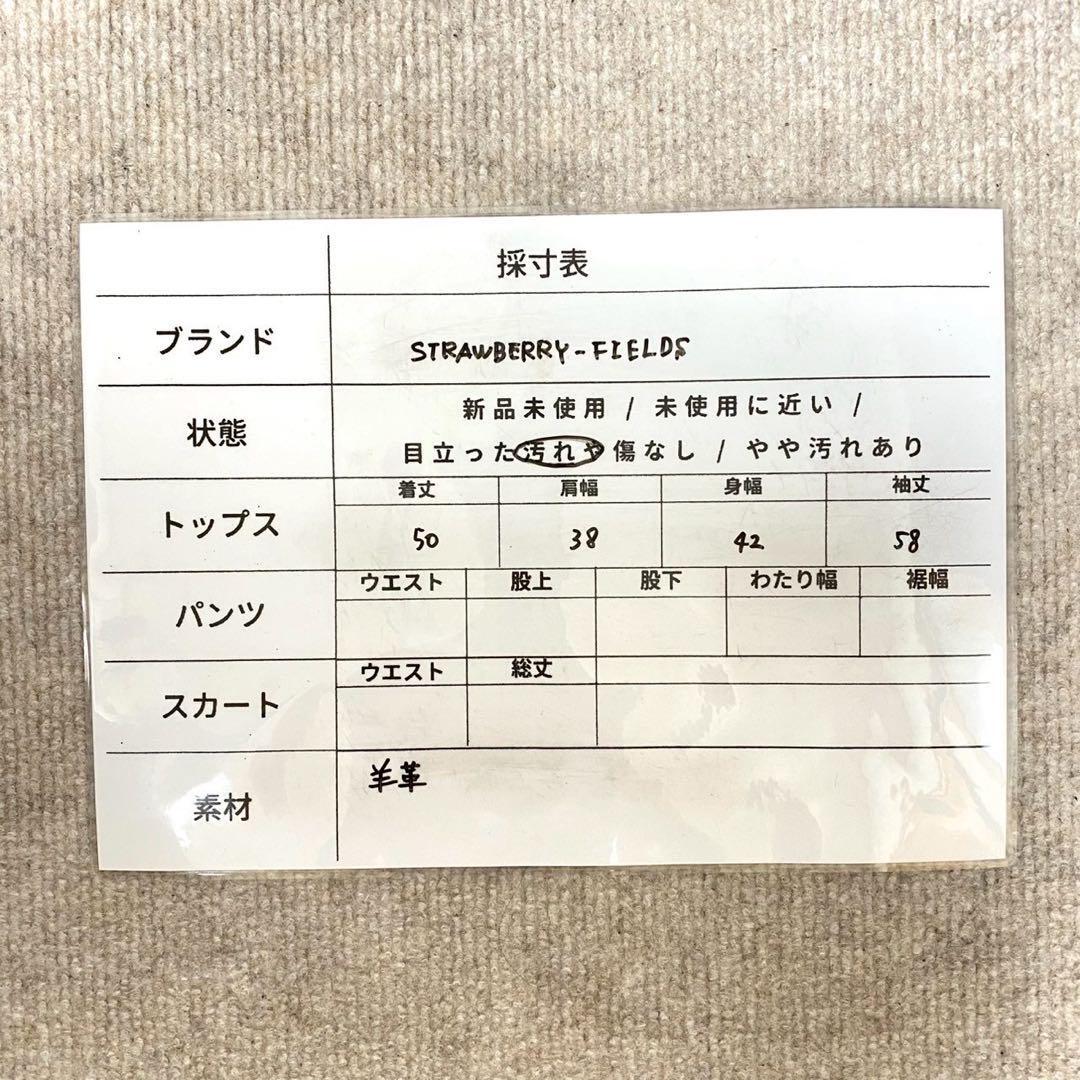 採寸表
ブランド STRAWBERRY-FIELDS
状態 新品未使用 / 未使用に近い /
目立った汚れや傷なし / やや汚れあり
トップス 着丈 肩幅 身幅 袖丈
50 38 42 58
パンツ ウエスト 股上 股下 わたり幅 裾幅
スカート ウエスト 総丈
素材 羊革